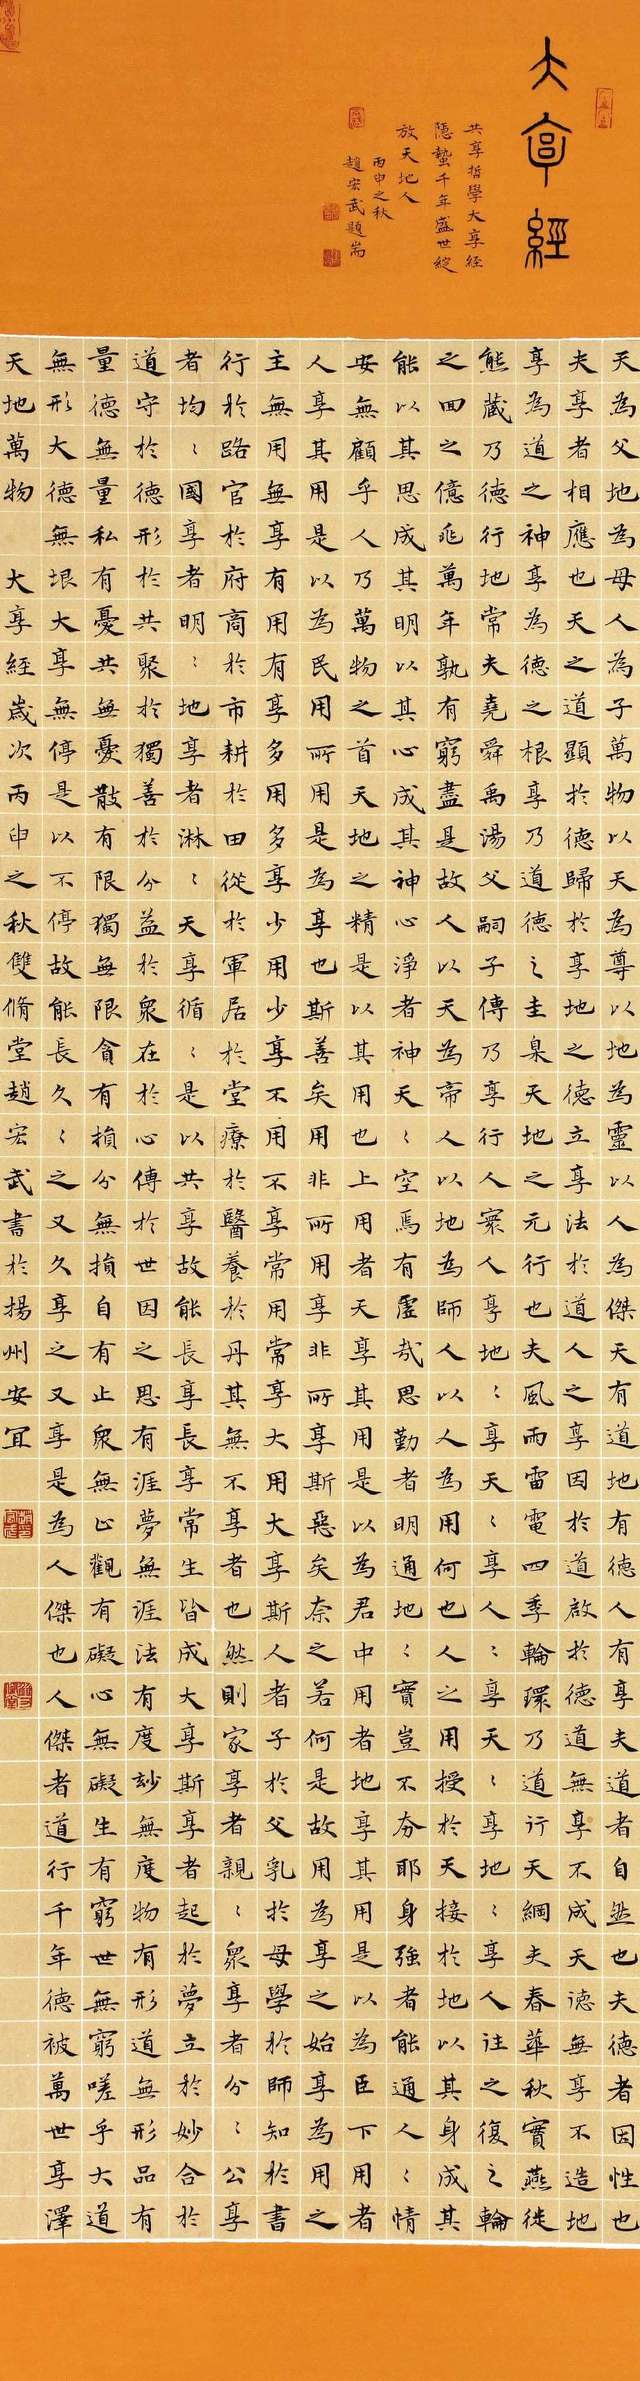 大享經
共享哲學大享經
隱蟄千年盛世綻
放天地人
丙申之秋
趙宏武題耑
天為父地為母人為子萬物以天為尊以地為靈以人為傑天有道地有德人有享夫道者自然也夫德者因性也
夫享者相應也天之道顯於德歸於享地之德立享法於道人之享因於道啟於德道無享不成天德無享不造地
享為道之神享為德之根享乃道德之圭臬天地之元行也夫風雨雷電四季輪環乃道行天綱夫春華秋實燕徙
熊藏乃德行地常夫堯舜禹湯父嗣子傳乃享行人寰人享地〻享天〻享人〻享天〻享地〻享人往之復之輪
之回之億兆萬年孰有窮盡是故人以天為帝人以地為師人以人為用何也人之用授於天接於地以其身成其
能以其思成其明以其心成其神心淨者神天〻空焉有虛哉思勤者明通地〻實豈不夯耶身強者能通人〻情
安無顧乎人乃萬物之首天地之精是以其用也上用者天享其用是以為君中用者地享其用是以為臣下用者
人享其用是以為民用所用是為享也斯善矣用非所用享非所享斯惡矣奈之若何是故用為享之始享為用之
主無用無享有用有享多用多享少用少享不用不享常用常享大用大享斯人者子於父乳於母學於師知於書
行於路官於府商於市耕於田從於軍居於堂療於醫養於丹其無不享者也然則家享者親〻眾享者分〻公享
者均〻國享者明〻地享者淋〻天享循〻是以共享故能長享長享常生皆成大享斯享者起於夢立於妙合於
道守於德形於共聚於獨善於分益於眾在於心傳於世因之思有涯夢無涯法有度妙無度物有形道無形品有
量德無量私有憂共無憂散有限獨無限貪有損分無損自有止眾無止觀有礙心無礙生有窮世無窮嗟乎大道
無形大德無垠大享無停是以不停故能長久〻之又久享之又享是為人傑也人傑者道行千年德被萬世享澤
天地萬物　大享經歲次丙申之秋雙脩堂趙宏武書於揚州安宜